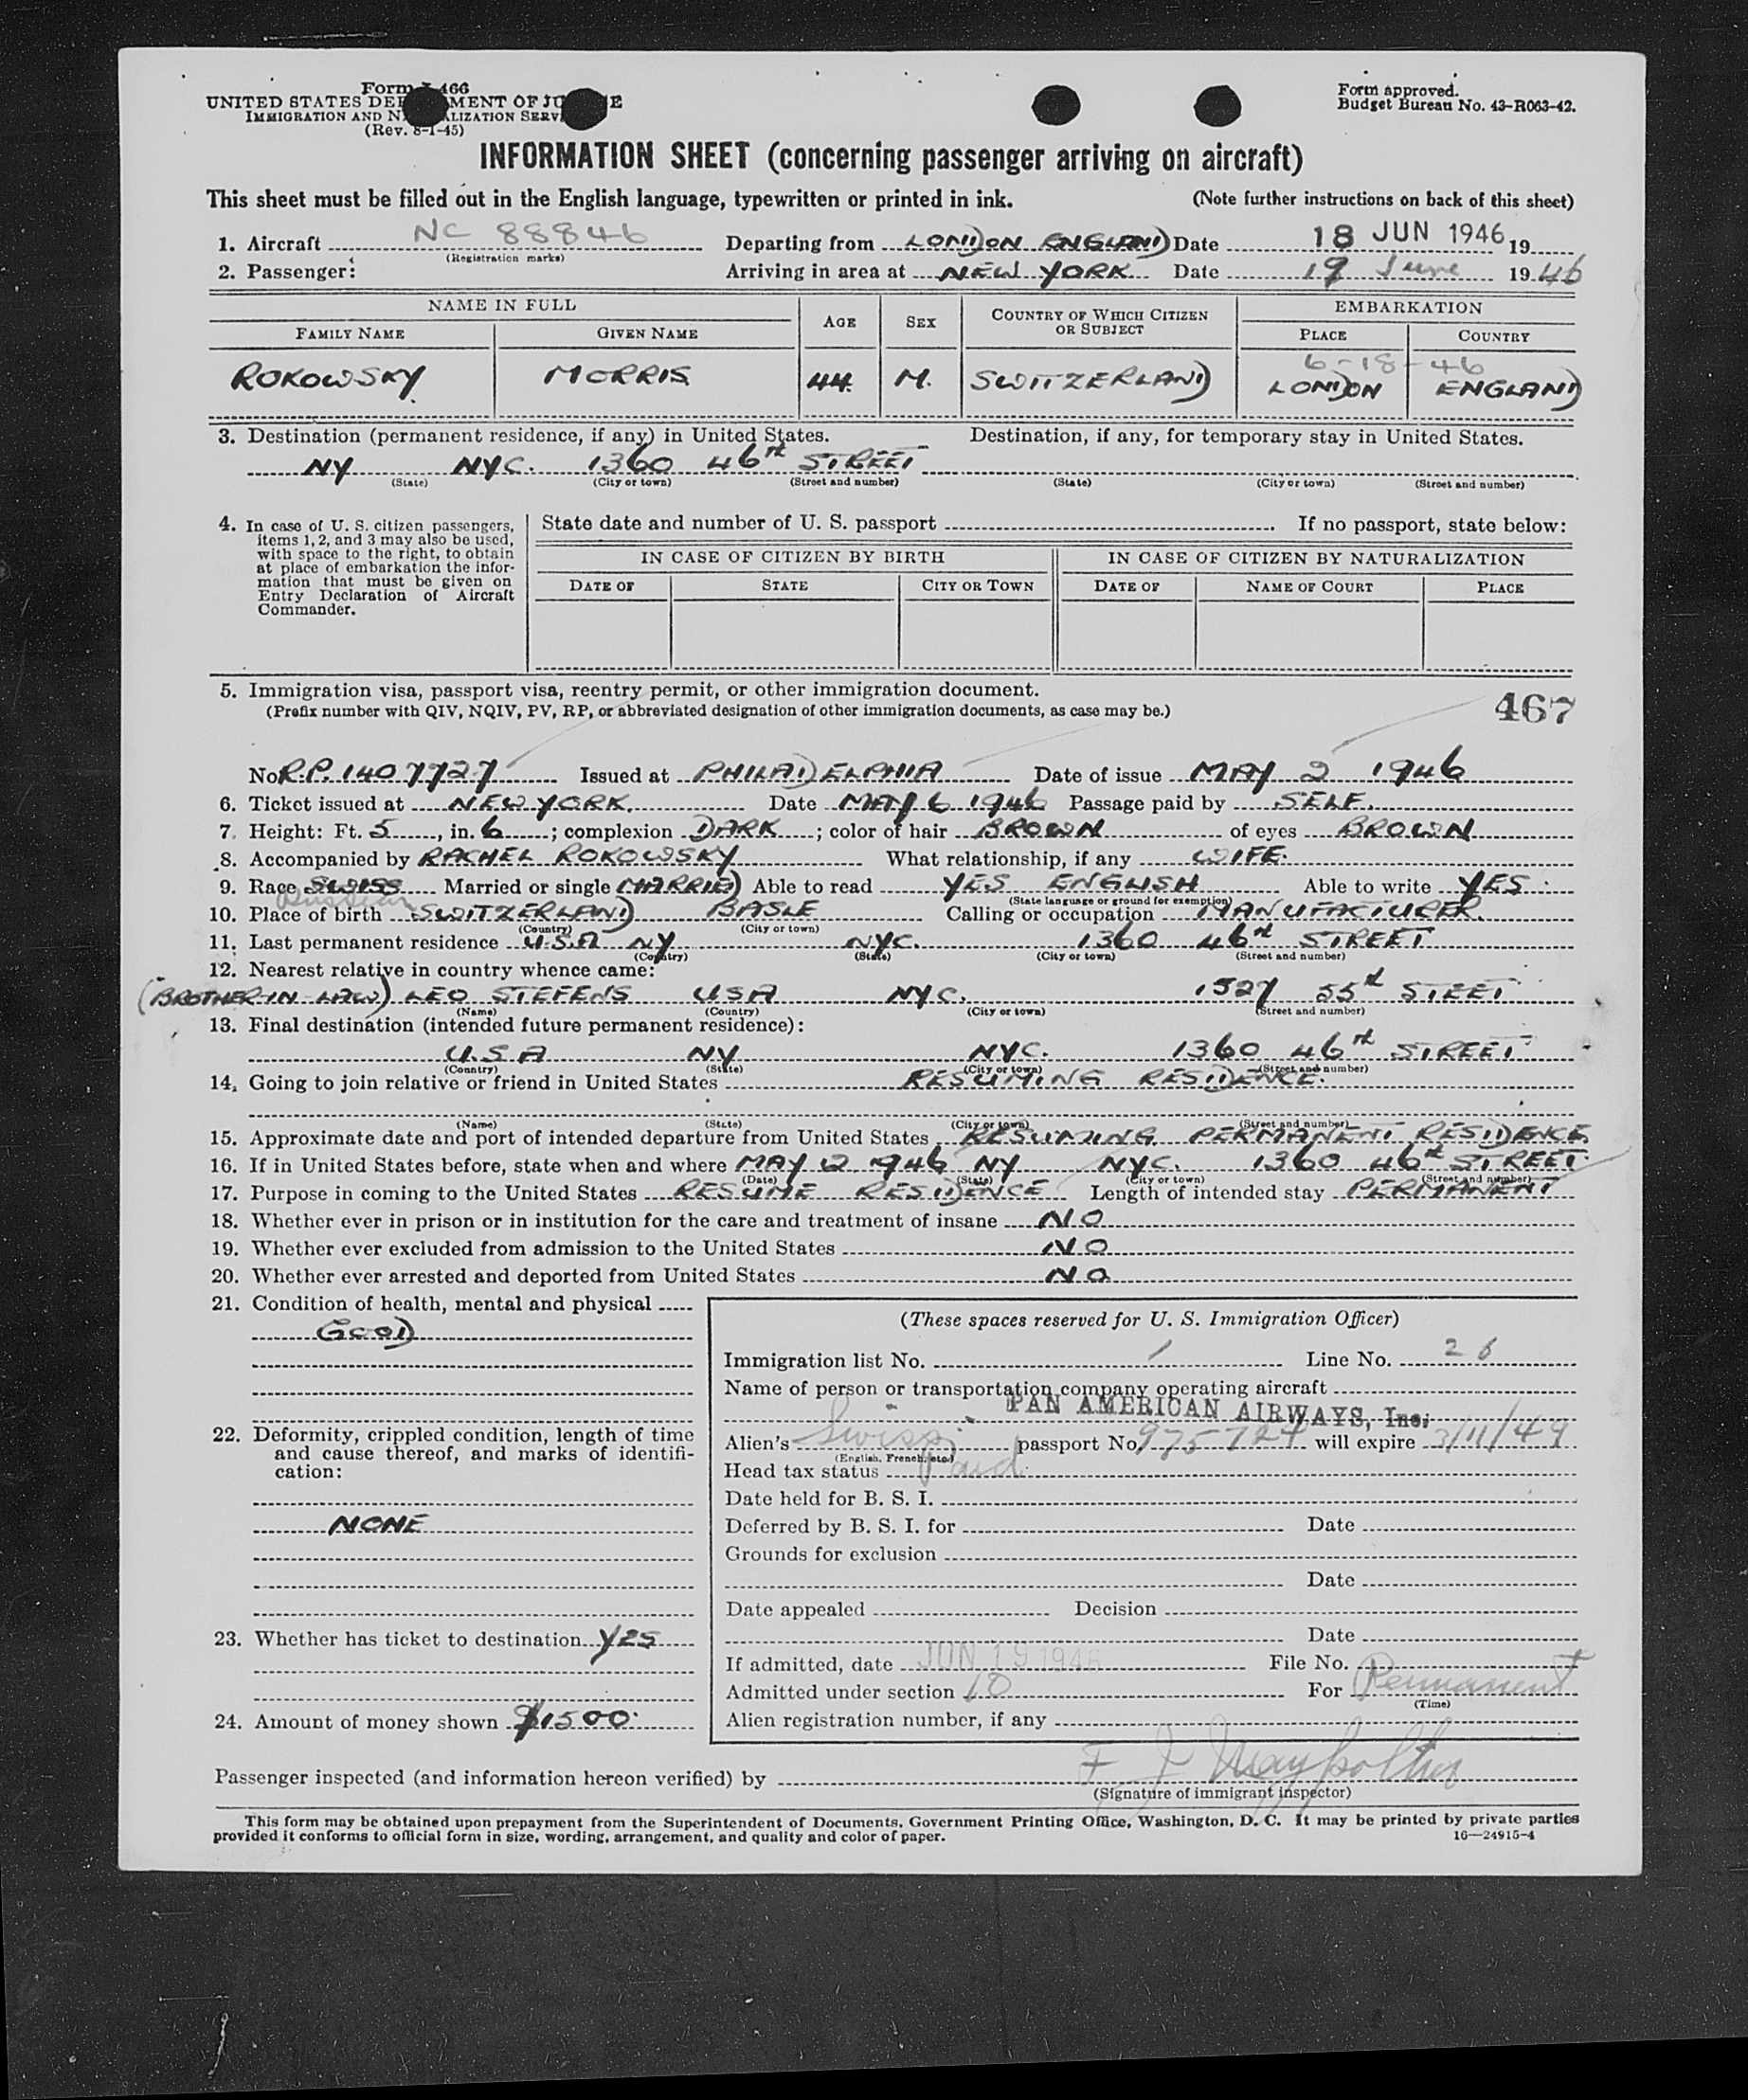 Form I-466
UNITED STATES DEPARTMENT OF JUSTICE
IMMIGRATION AND NATURALIZATION SERVICE
(Rev. 8-1-45)
Form approved.
Budget Bureau No. 43-R063-42.
INFORMATION SHEET (concerning passenger arriving on aircraft)
This sheet must be filled out in the English language, typewritten or printed in ink. (Note further instructions on back of this sheet)
1. Aircraft NC 88846 Departing from LONDON ENGLAND Date 18 JUN 1946 19
(Registration marks)
2. Passenger: Arriving in area at NEW YORK Date 19 June 1946
NAME IN FULL AGE SEX COUNTRY OF WHICH CITIZEN OR SUBJECT EMBARKATION
FAMILY NAME GIVEN NAME PLACE COUNTRY
6-18-46
ROKOWSKY MORRIS 44 M. SWITZERLAND LONDON ENGLAND
3. Destination (permanent residence, if any) in United States. Destination, if any, for temporary stay in United States.
NY NYC. 1360 46th STREET
(State) (City or town) (Street and number) (State) (City or town) (Street and number)
4. In case of U. S. citizen passengers, items 1, 2, and 3 may also be used, with space to the right, to obtain at place of embarkation the information that must be given on Entry Declaration of Aircraft Commander.
State date and number of U. S. passport If no passport, state below:
IN CASE OF CITIZEN BY BIRTH IN CASE OF CITIZEN BY NATURALIZATION
DATE OF STATE CITY OR TOWN DATE OF NAME OF COURT PLACE
5. Immigration visa, passport visa, reentry permit, or other immigration document.
(Prefix number with QIV, NQIV, PV, RP, or abbreviated designation of other immigration documents, as case may be.)
467
No. R.P. 1407727 Issued at PHILADELPHIA Date of issue MAY 2 1946
6. Ticket issued at NEW YORK. Date MAY 6 1946 Passage paid by SELF.
7. Height: Ft. 5, in. 6; complexion DARK; color of hair BROWN of eyes BROWN
8. Accompanied by RACHEL ROKOWSKY What relationship, if any WIFE.
9. Race SWISS Married or single MARRIED Able to read YES ENGLISH Able to write YES
Russian
(State language or ground for exemption)
10. Place of birth SWITZERLAND BASLE Calling or occupation MANUFACTURER.
(Country) (City or town)
11. Last permanent residence U.S.A NY NYC. 1360 46th STREET
(Country) (State) (City or town) (Street and number)
12. Nearest relative in country whence came:
(BROTHER-IN-LAW) LEO STEFENS USA NYC. 1527 55th STEET
(Name) (Country) (City or town) (Street and number)
13. Final destination (intended future permanent residence):
U.S.A NY NYC. 1360 46th STREET
(Country) (State) (City or town) (Street and number)
14. Going to join relative or friend in United States RESUMING RESIDENCE.
(Name) (State) (City or town) (Street and number)
15. Approximate date and port of intended departure from United States RESUMING PERMANENT RESIDENCE
16. If in United States before, state when and where MAY 12 1946 NY NYC. 1360 46th STREET
(Date) (State) (City or town) (Street and number)
17. Purpose in coming to the United States RESUME RESIDENCE Length of intended stay PERMANENT
18. Whether ever in prison or in institution for the care and treatment of insane NO
19. Whether ever excluded from admission to the United States NO
20. Whether ever arrested and deported from United States NO
21. Condition of health, mental and physical
GOOD
22. Deformity, crippled condition, length of time and cause thereof, and marks of identification:
NONE
23. Whether has ticket to destination YES
24. Amount of money shown $1500.
(These spaces reserved for U. S. Immigration Officer)
Immigration list No. 1 Line No. 26
Name of person or transportation company operating aircraft
PAN AMERICAN AIRWAYS, Inc.
Alien's Swiss passport No. 975724 will expire 3/11/49
(English, French, etc.)
Head tax status Paid
Date held for B. S. I.
Deferred by B. S. I. for Date
Grounds for exclusion
Date
Date appealed Decision
Date
If admitted, date JUN 19 1946 File No.
Admitted under section 10 For Permanent
(Time)
Alien registration number, if any
Passenger inspected (and information hereon verified) by F J
(Signature of immigrant inspector)
This form may be obtained upon prepayment from the Superintendent of Documents, Government Printing Office, Washington, D. C. It may be printed by private parties
provided it conforms to official form in size, wording, arrangement, and quality and color of paper. 16—24915-4